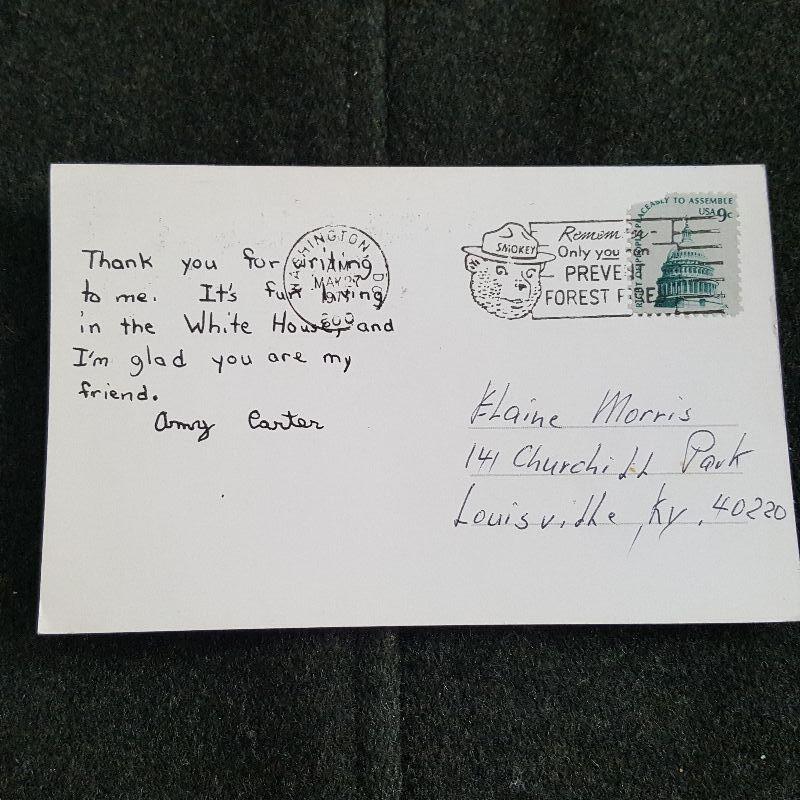 Thank you for writing
to me. It's fun living
in the White House, and
I'm glad you are my
friend.
Amy Carter
WASHINGTON DC
AM
MAY 27
SMOKEY
Only you can
PREVE
FOREST
RIGHT OF PEOPLE PEACEABLY TO ASSEMBLE
USA 9c
Elaine Morris
141 Churchill Park
Louisville, Ky. 40220